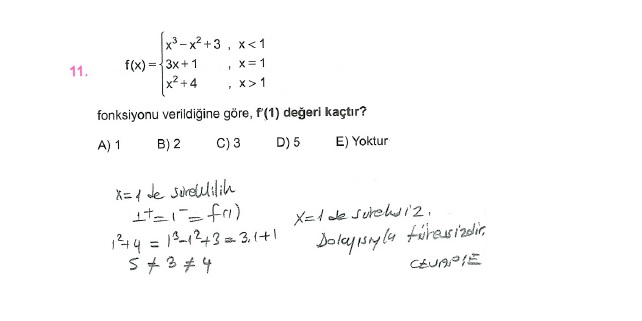 11. f(x) = { x³ – x² + 3 , x < 1
3x + 1 , x = 1
x² + 4 , x > 1
fonksiyonu verildiğine göre, f'(1) değeri kaçtır?
A) 1 B) 2 C) 3 D) 5 E) Yoktur
x=1 de süreklilik
1⁺ = 1⁻ = f(1)
1²+4 = 1³-1²+3 = 3.1+1
5 ≠ 3 ≠ 4
X=1 de süreksiz.
Dolayısıyla türevsizdir.
CEVAP E